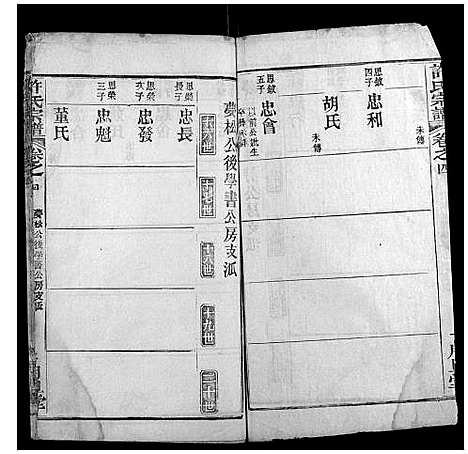 許氏宗譜
卷之四
思敏四子
忠和
未傳
胡氏
未傳
思敏五子
忠會
夢松公後學書公房支派
十六世
十七世
十八世
十九世
二十世
思榮長子
忠長
思榮次子
忠發
思榮三子
忠魁
董氏
許氏宗譜
卷之四
夢松公後學書公房支派